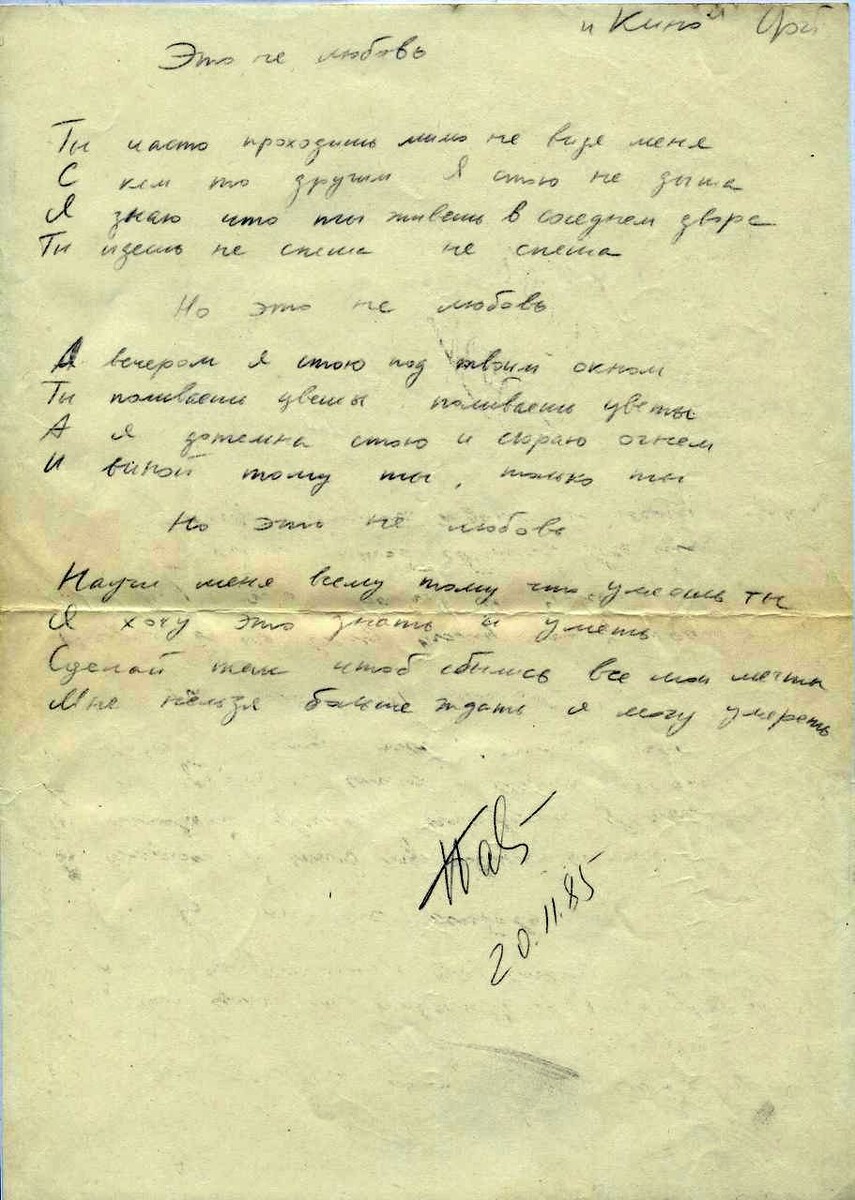 "Кино" Цой
Это не любовь
Ты часто проходишь мимо не видя меня
С кем то другим Я стою не дыша
Я знаю что ты живешь в соседнем дворе
Ты идешь не спеша не спеша
Но это не любовь
А вечером я стою под твоим окном
Ты поливаешь цветы поливаешь цветы
А я дотемна стою и сгораю огнем
И виной тому ты, только ты
Но это не любовь
Научи меня всему тому что умеешь ты
Я хочу это знать и уметь
Сделай так чтоб сбылись все мои мечты
Мне нельзя больше ждать я могу умереть
20.11.85